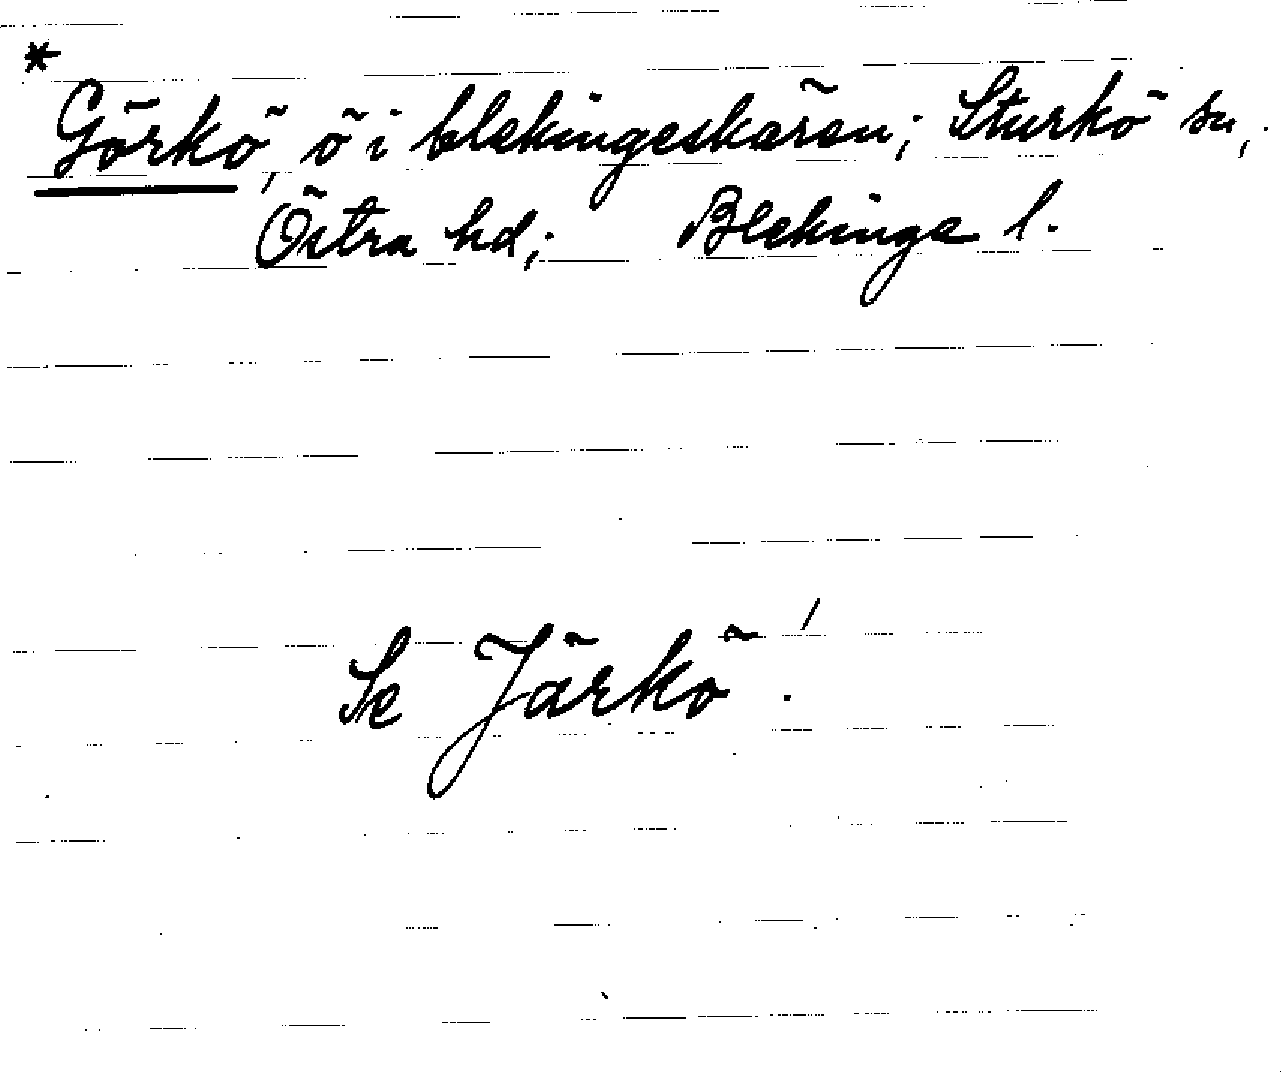 * Görkö, ö i blekingeskären; Sturkö sn,
Östra hd; Blekinge l.
Se Järkö!